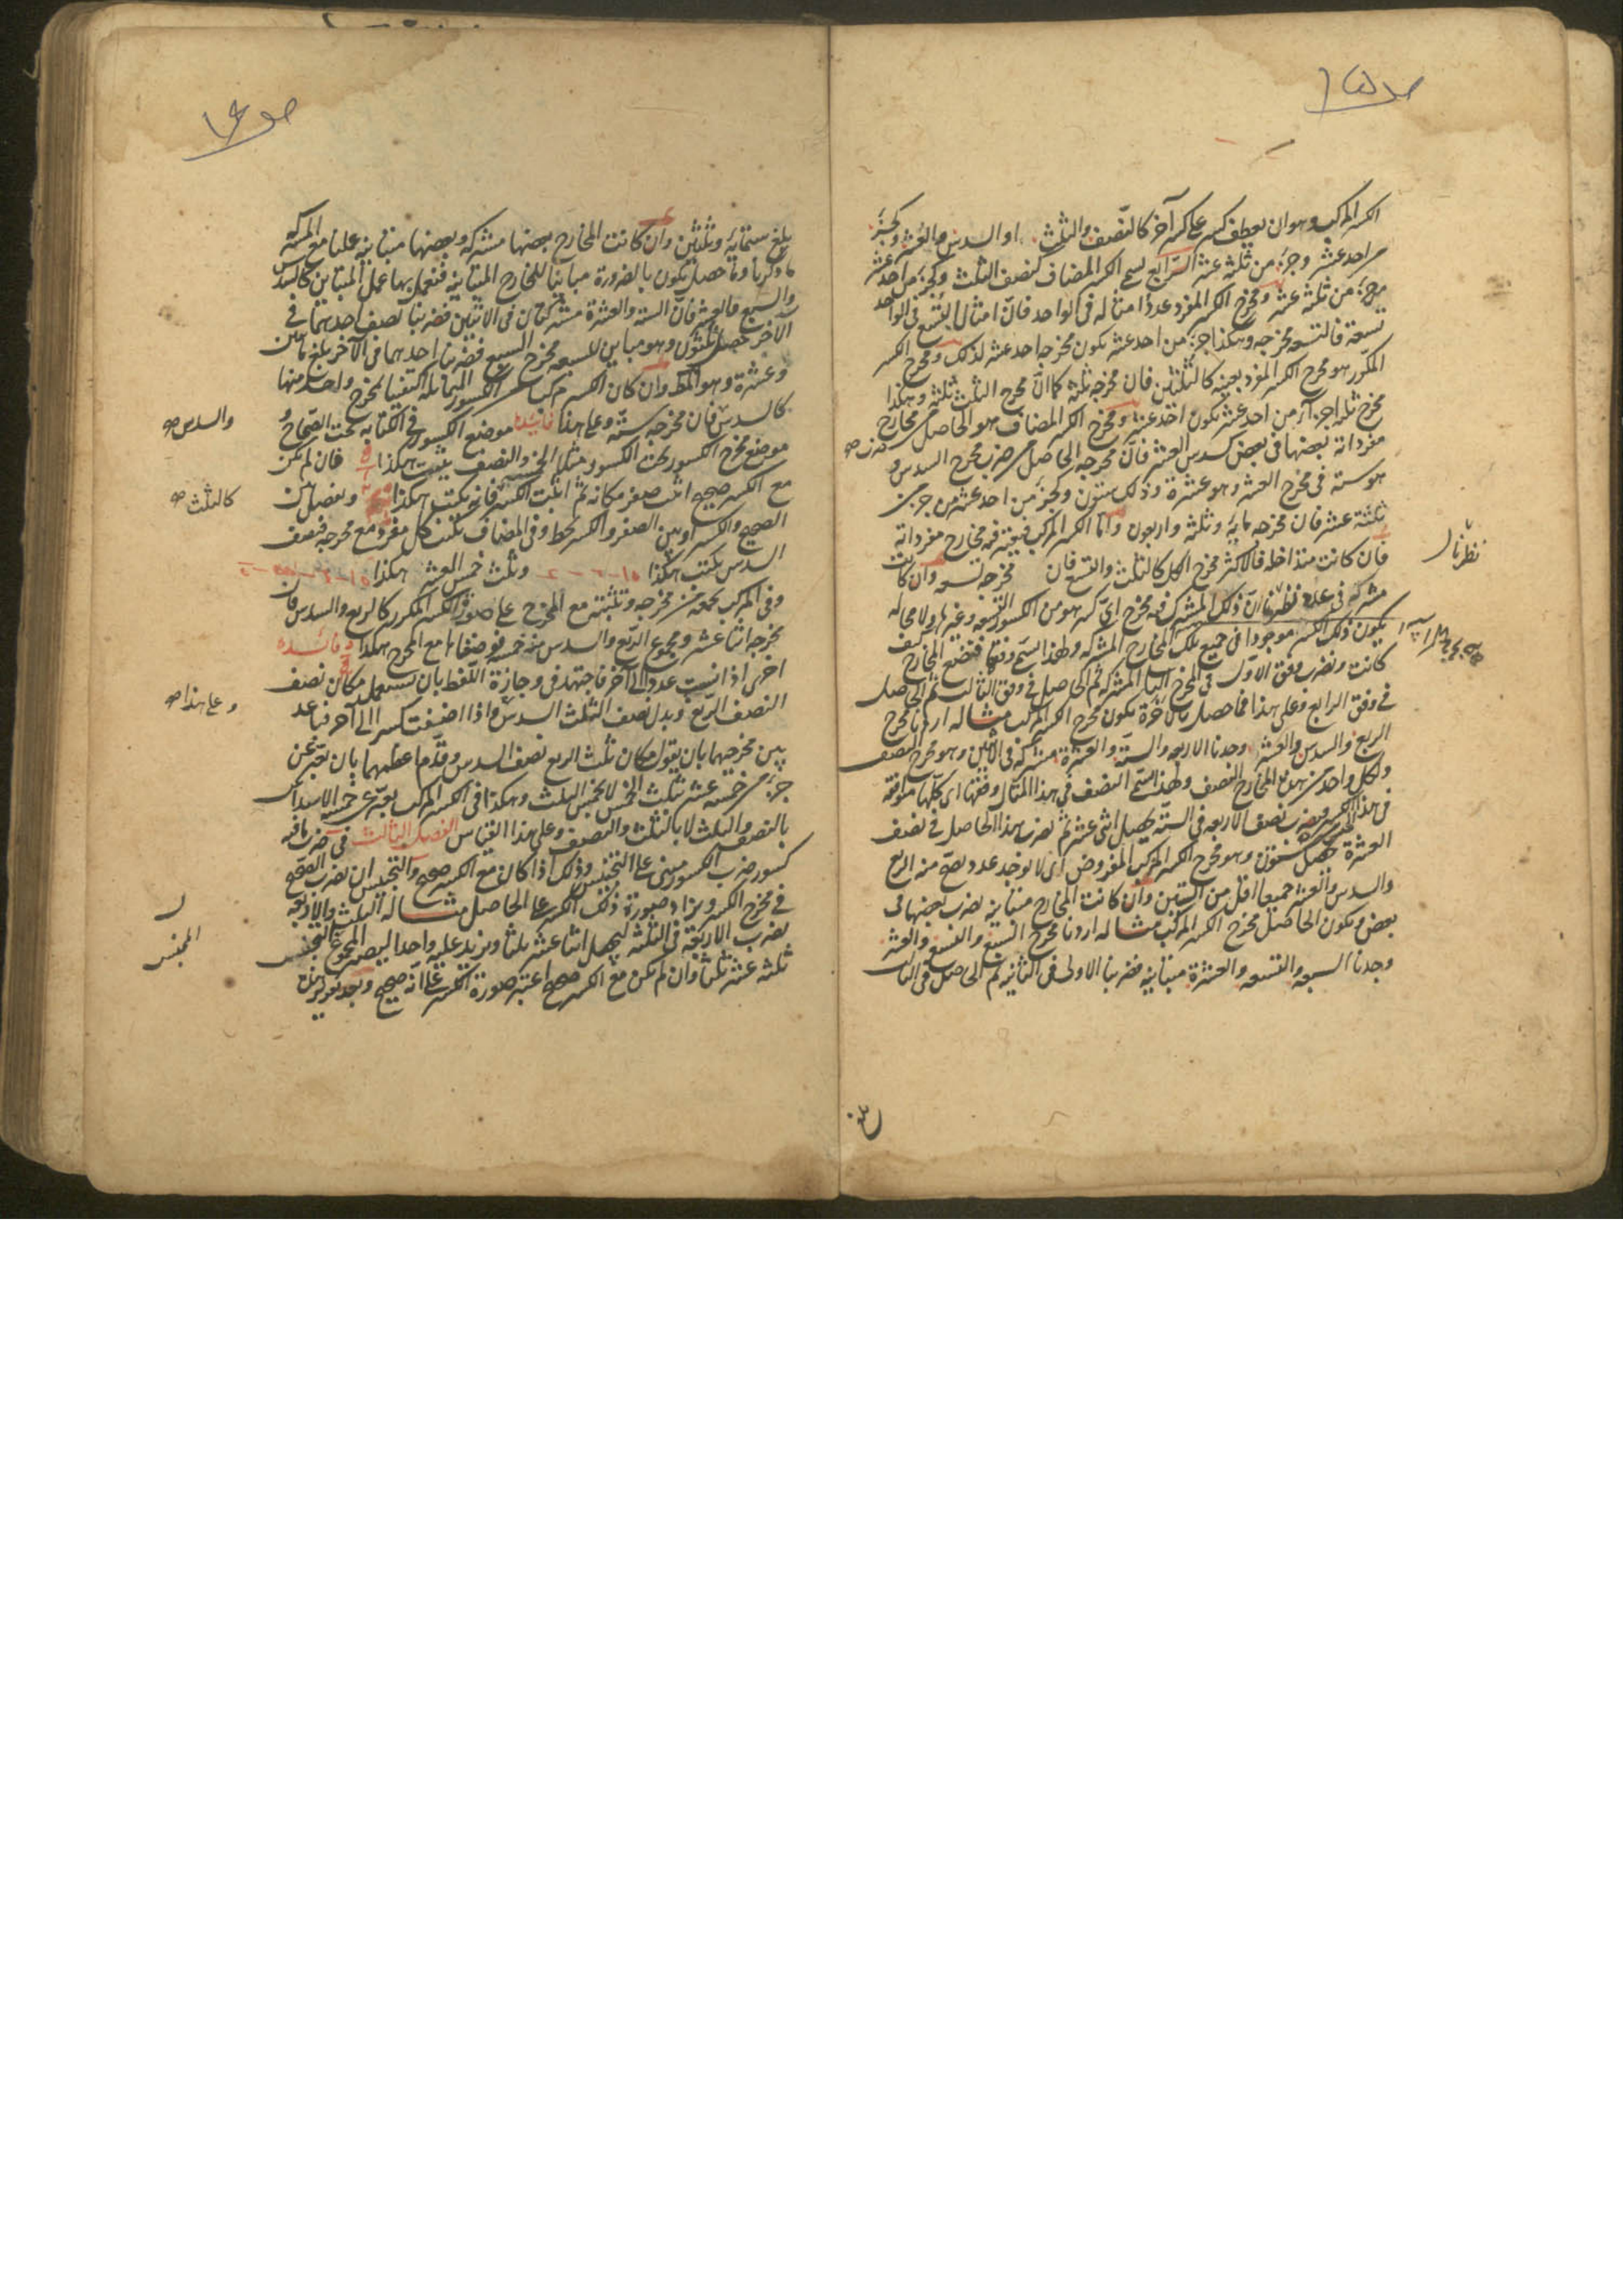 الكسر المركب وهو ان يعطف كسر على كسر آخر كالنصف والثلث او السدس والعشر وكجزء
من احد عشر وجزء من ثلثة عشر الرابع يسمى الكسر المضاف كنصف الثلث وكجزء من احد عشر
من جزء من ثلثة عشر ومخرج الكسر المفرد عدد امثاله فى الواحد فان امثال التسع فى الواحد
تسعة فالتسعه مخرجه وهكذا جزء من احد عشر يكون مخرجه احد عشر لذلك ومخرج الكسر
المكرر هو مخرج الكسر المفرد بعينه كالثلثين فان مخرجه ثلثه كما ان مخرج الثلث ثلثه وهكذا
مخرج ثلثه اجزاء من احد عشر يكون احد عشر ومخرج الكسر المضاف هو الحاصل من مخارج
مفرداته بعضها فى بعض كسدس العشر فان مخرجه الحاصل من ضرب مخرج السدس و
هو سته فى مخرج العشر وهو عشرة وذلك ستون وكجزء من احد عشر من جزء من
ثلثة عشر فان مخرجه مايه وثلثه واربعون واما الكسر المركب فمخارج مفرداته
فان كانت متداخله فالاكثر مخرج الكل كالثلث والتسع فان مخرجه تسعه وان كانت
مشتركه فى عدد نظرنا ان ذلك المشترك فيه مخرج اى كسر هو من الكسور التسعه وغيرها ولا محاله
يكون ذلك الكسر موجودا فى جميع تلك المخارج المشتركه ولهذا يسمى وفقها فنضع المخارج كيف
كانت ونضرب وفق الاول فى المخرج الثانى المشترك ثم الحاصل فى وفق الثالث ثم الحاصل
فى وفق الرابع وعلى هذا فما حصل بالآخرة يكون مخرج الكسر المركب مثاله اردنا مخرج
الربع والسدس والعشر وجدنا الاربعه والستة والعشرة مشتركة فى الاثنين وهو مخرج النصف
ولكل واحد من هذه المخارج النصف ولهذا يسمى النصف فى هذا المثال وفقها اى كلها متوافقه
فى هذا الكسر فنضرب نصف الاربعه فى السته يحصل اثنى عشر ثم نضرب هذا الحاصل فى نصف
العشرة حصل ستون وهو مخرج الكسر المركب المفروض اى لا يوجد عدد يصح منه الربع
والسدس والعشر جميعا اقل من الستين وان كانت المخارج متباينه نضرب بعضها فى
بعض ويكون الحاصل مخرج الكسر المركب مثاله اردنا مخرج السبع والتسع والعشر
وجدنا السبعه والتسعه والعشرة متباينه فضربنا الاولى فى الثانيه ثم الحاصل فى الثالث
نظرنا
بلغ ستمايه وثلثين وان كانت المخارج بعضها مشتركه وبعضها متباينه عملنا مع المشتركه
ما ذكرنا وما حصل يكون بالضرورة مباينا للمخارج المتباينه فنعمل بها عمل المتباين كالسدس
والسبع والعشر فان الستة والعشرة مشتركتان فى الاثنين فضربنا نصف احدهما فى
الآخر حصل ثلثون وهو مباين للسبعه مخرج السبع فضربنا احدهما فى الآخر بلغ مأتين
وعشرة وهو المط وان كان الكسر مركبا من الكسور المتماثله اكتفينا بمخرج واحد منها
كالسدس فان مخرجه ستة وعلى هذا فائده موضع الكسور فى الكتابه تحت الصحاح و
موضع مخرج الكسور تحت الكسور مثلا الخمسه والنصف يثبت هكذا فان لم يكن
مع الكسر صحيح اثبت صفر مكانه ثم اثبت الكسر فانه يكتب هكذا ويفصل بين
الصحيح والكسر او بين الصفر والكسر بخط وفى المضاف يكتب كل مفرد مع مخرجه فنصف
السدس يكتب هكذا وثلث خمس العشر هكذا
وفى المركب يجمع من مخرجه وتثبته مع المخرج على صورة الكسر المكرر كالربع والسدس فان
مخرجه اثنا عشر ومجموع الربع والسدس منه خمسه فوضعناها مع المخرج هكذا فائده
اخرى اذا نسبت عددا الى آخر فاجتهد فى وجازة اللفظ بان يستعمل مكان نصف
النصف الربع وبدل نصف الثلث السدس واذا اضفت كسرا الى آخر فباعد
بين مخرجيهما بان يقول مكان ثلث الربع نصف السدس وقدم اعظمهما بان يعبر عن
جزء من خمسه عشر بثلث الخمس لا بخمس الثلث وهكذا فى الكسر المركب يعبر عن خمسه الاسداس
بالنصف والثلث لا بالثلث والنصف وعلى هذا القياس الفصل الثالث فى ضرب ما فيه
كسور ضرب الكسور مبنى على التجنيس وذلك اذا كان مع الكسر صحيح والتجنيس ان نضرب الصحيح
فى مخرج الكسر ويزاد صورة ذلك الكسر على الحاصل مثاله الثلث والاربعه
نضرب الاربعة فى الثلثه ليحصل اثنا عشر ثلثا ونزيد عليه واحدا ليصير المجموع
ثلثه عشر ثلثا وان لم يكن مع الكسر صحيح اعتبر صورة الكسر على انه صحيح وبعد تقرير هذا
والسدس صح
كالثلث صح
وعلى هذا صح
المجنس